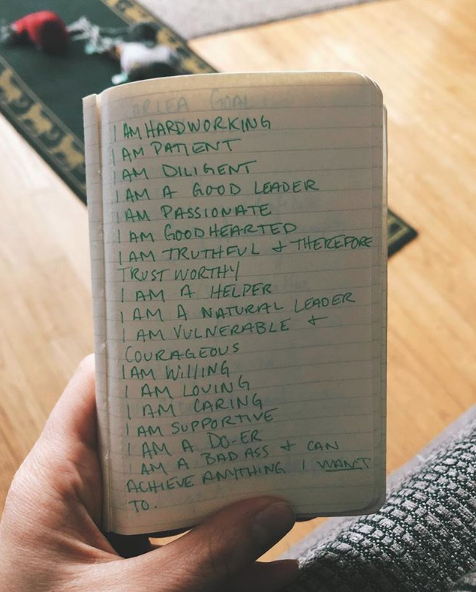 GOAL
I AM HARDWORKING
I AM PATIENT
I AM DILIGENT
I AM A GOOD LEADER
I AM PASSIONATE
I AM GOODHEARTED
I AM TRUTHFUL & THEREFORE
TRUSTWORTHY
I AM A HELPER
I AM A NATURAL LEADER
I AM VULNERABLE &
COURAGEOUS
I AM WILLING
I AM LOVING
I AM CARING
I AM SUPPORTIVE
I AM A DO-ER
I AM A BADASS & CAN
ACHIEVE ANYTHING I WANT
TO.